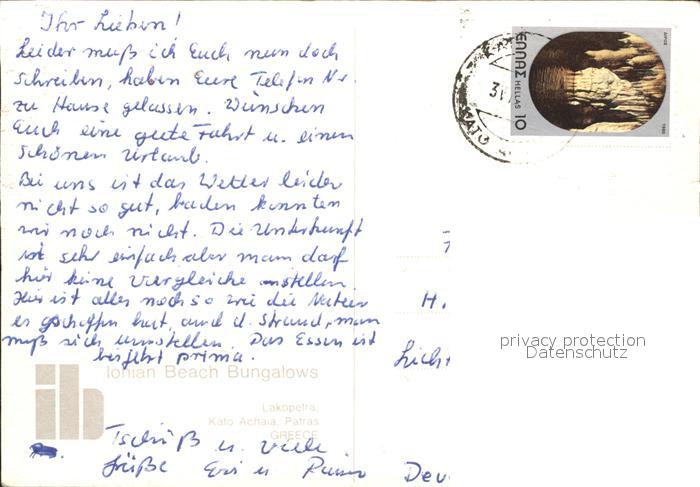 Ihr Lieben!
Leider muß ich Euch nun doch
schreiben, haben Eure Telefon Nr.
zu Hause gelassen. Wünschen
Euch eine gute Fahrt u. einen
schönen Urlaub.
Bei uns ist das Wetter leider
nicht so gut, baden konnten
wir noch nicht. Die Unterkunft
ist sehr einfach aber man darf
hier keine Vergleiche anstellen.
Hier ist alles noch so wie die Natur
es geschaffen hat, auch d. Strand, man
muß sich umstellen. Das Essen ist
bis jetzt prima.
Tschüß u. viele
Grüße Evi u Rainer
ΕΛΛΑΣ HELLAS 10
1980
ΚΑΤΩ
H.
Licht
Deu
privacy protection
Datenschutz
ib
Ionian Beach Bungalows
Lakopetra,
Kato Achaia, Patras
GREECE